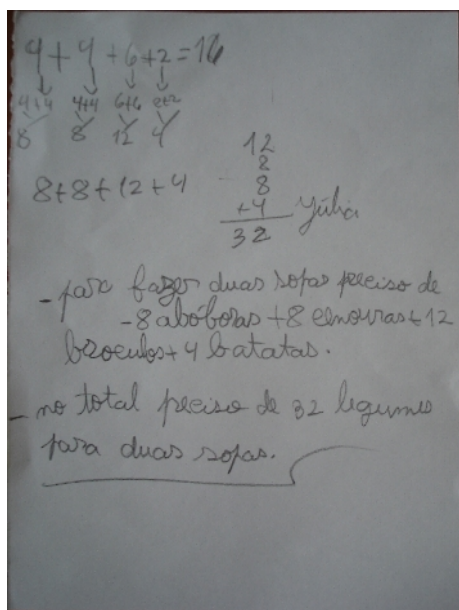 4+4+6+2=16
4+4 4+4 6+6 2+2
8 8 12 4
8+8+12+4
12
8
8
+4
32
Júlia
-para fazer duas sopas preciso de
-8 abóboras +8 cenouras+12
brócculos+4 batatas.
-no total preciso de 32 legumes
para duas sopas.